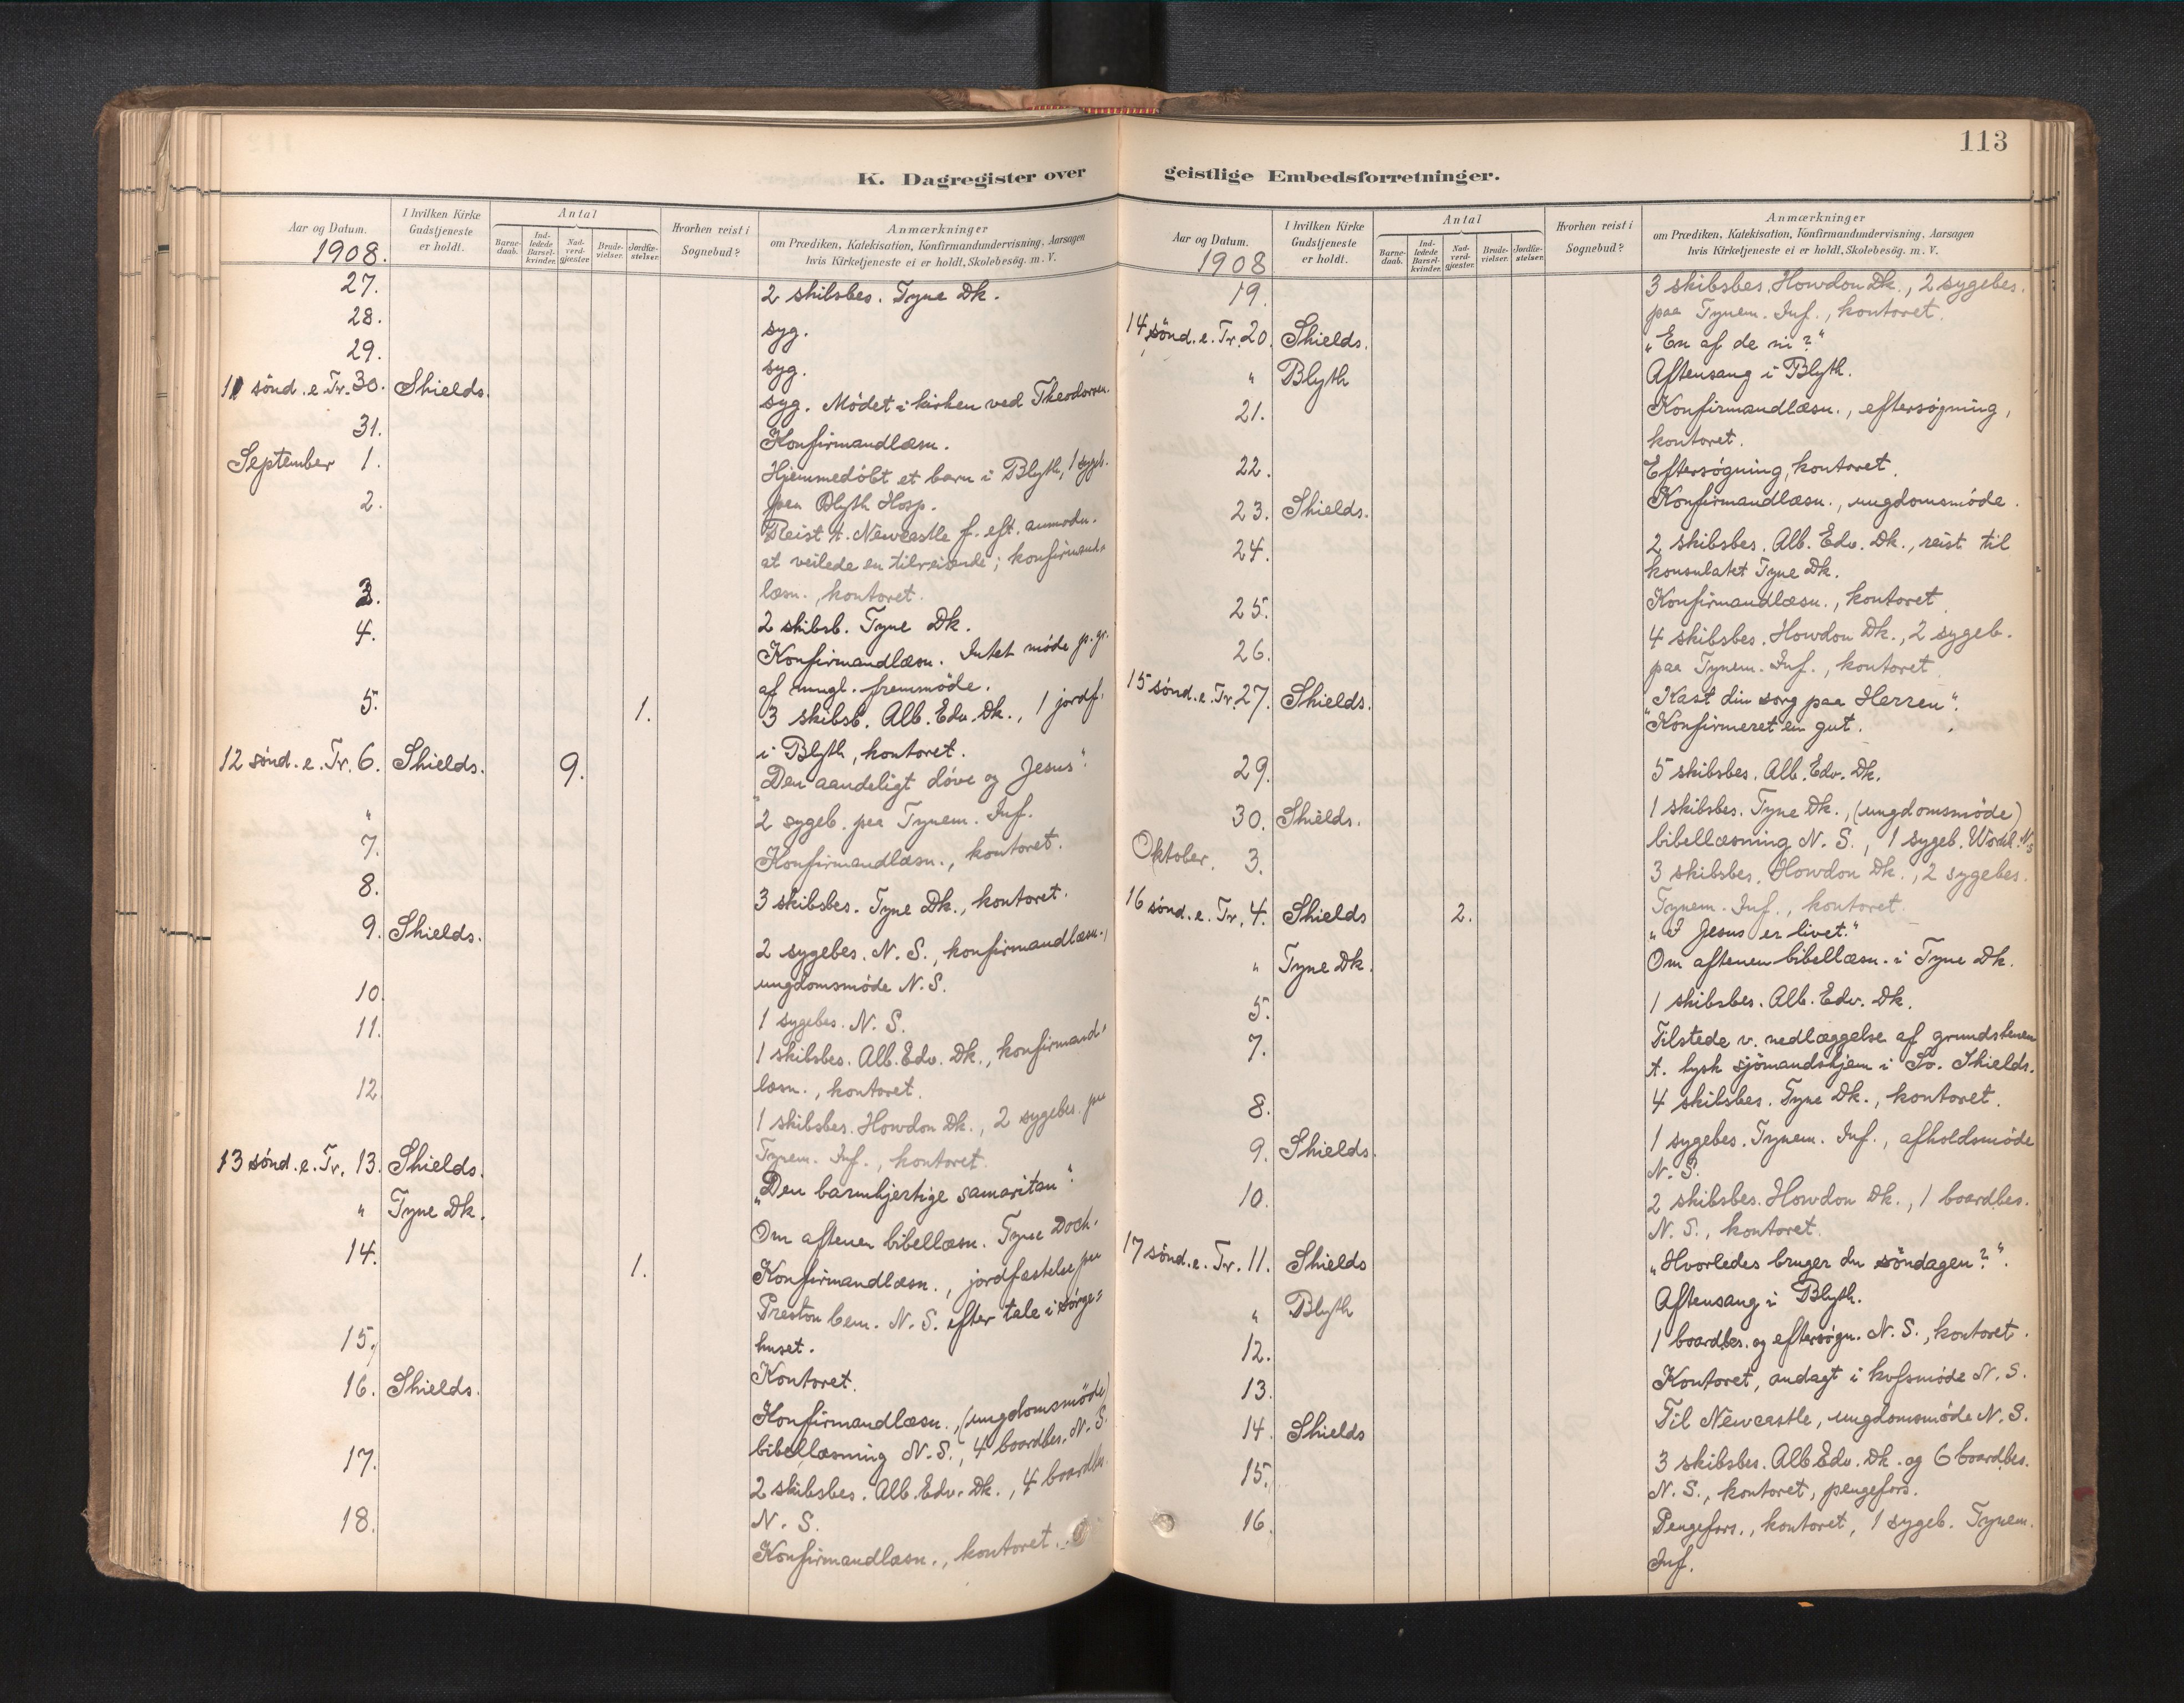 K. Dagregister over
Aar og Datum.
1908.
I hvilken Kirke Gudstjeneste er holdt.
Antal
Barne-daab.
Ind-ledede Barsel-kvinder.
Nad-verd-gjæster.
Brude-vielser.
Jordfæ-stelser.
Hvorhen reist i Sognebud?
Anmærkninger
om Prædiken, Katekisation, Konfirmandundervisning, Aarsagen
hvis Kirketjeneste ei er holdt, Skolebesög. m. V.
27. 2 skibsbes. Tyne Dk.
28. syg.
29. syg.
11 sönd. e. Tr. 30. Shields. syg. Mödet i kirken ved Theodorsen.
31. Konfirmandlæsn.
September 1. Hjemmedöbt et barn i Blyth, 1 sygeb.
paa Blyth Hosp.
2. Reist t. Newcastle f. eft. anmodn.
at veilede en tilreisende; konfirmand=
læsn., kontoret.
3. 2 skibsb. Tyne Dk.
4. Konfirmandlæsn. Intet möde p. gr.
af mngl. fremmöde.
5. 1. 3 skibsb. Alb. Edv. Dk., 1 jordf.
i Blyth, kontoret.
12 sönd. e. Tr. 6. Shields. 9. "Den aandeligt döve og Jesus".
" 2 sygeb. paa Tynem. Inf.
7. Konfirmandlæsn., kontoret.
8. 3 skibsbes. Tyne Dk., kontoret.
9. Shields. 2 sygebes. N. S., konfirmandlæsn.,
ungdomsmöde N. S.
10. 1 sygebes. N. S.
11. 1 skibsbes. Alb. Edv. Dk., konfirmand=
læsn., kontoret.
12. 1 skibsbes. Howdon Dk., 2 sygebes. paa
Tynem. Inf., kontoret.
13 sönd. e. Tr. 13. Shields. "Den barmhjertige samaritan".
" Tyne Dk. Om aftenen bibellæsn. Tyne Dock.
14. 1. Konfirmandlæsn., jordfæstelse paa
Preston Cem. N. S. efter tale i sörge=
huset.
15. Kontoret.
16. Shields. Konfirmandlæsn., (ungdomsmöde)
bibellæsning N. S., 4 boardbes. N. S.
17. 2 skibsbes. Alb. Edv. Dk., 4 boardbes.
N. S.
18. Konfirmandlæsn., kontoret.
113
geistlige Embedsforretninger.
Aar og Datum.
1908
I hvilken Kirke Gudstjeneste er holdt.
Antal
Barne-daab.
Ind-ledede Barsel-kvinder.
Nad-verd-gjæster.
Brude-vielser.
Jordfæ-stelser.
Hvorhen reist i Sognebud?
Anmærkninger
om Prædiken, Katekisation, Konfirmandundervisning, Aarsagen
hvis Kirketjeneste ei er holdt, Skolebesög. m. V.
19. 3 skibsbes. Howdon Dk., 2 sygebes.
paa Tynem. Inf., kontoret.
14 sönd. e. Tr. 20. Shields. "En af de ni?"
" Blyth Aftensang i Blyth.
21. Konfirmandlæsn., eftersögning,
kontoret.
22. Eftersögning, kontoret.
23. Shields. Konfirmandlæsn., ungdomsmöde.
24. 2 skibsbes. Alb. Edv. Dk., reist til
konsulatet Tyne Dk.
25. Konfirmandlæsn., kontoret
26. 4 skibsbes. Howdon Dk., 2 sygeb.
paa Tynem. Inf., kontoret
15 sönd. e. Tr. 27. Shields. "Kast din sorg paa Herren".
Konfirmeret en gut.
29. 5 skibsbes. Alb. Edv. Dk.
30. Shields. 1 skibsbes. Tyne Dk., (ungdomsmöde)
bibellæsning N. S., 1 sygeb. N. S.
Oktober. 3. 3 skibsbes. Howdon Dk., 2 sygebes.
Tynem. Inf., kontoret.
16 sönd. e. Tr. 4. Shields 2. "I Jesus er livet."
" Tyne Dk. Om aftenen bibellæsn. i Tyne Dk.
5. 1 skibsbes. Alb. Edv. Dk.
7. Tilstede v. nedlæggelse af grundstenen
t. tysk sjömandshjem i So. Shields.
8. 4 skibsbes. Tyne Dk., kontoret.
9. Shields. 1 sygebes. Tynem. Inf., afholdsmöde
N. S.
10. 2 skibsbes. Howdon Dk., 1 boardbes.
N. S., kontoret.
17 sönd. e. Tr. 11. Shields "Hvorledes bruger du söndagen?".
" Blyth Aftensang i Blyth.
12. 1 boardbes. og eftersögn. N. S., kontoret.
13. Kontoret, andagt i kvfsmöde N. S.
14. Shields Til Newcastle, ungdomsmöde N. S.
15. 3 skibsbes. Alb Edv. Dk. og 6 boardbes.
N. S., kontoret, pengefors.
16. Pengefors., kontoret, 1 sygeb. Tynem.
Inf.